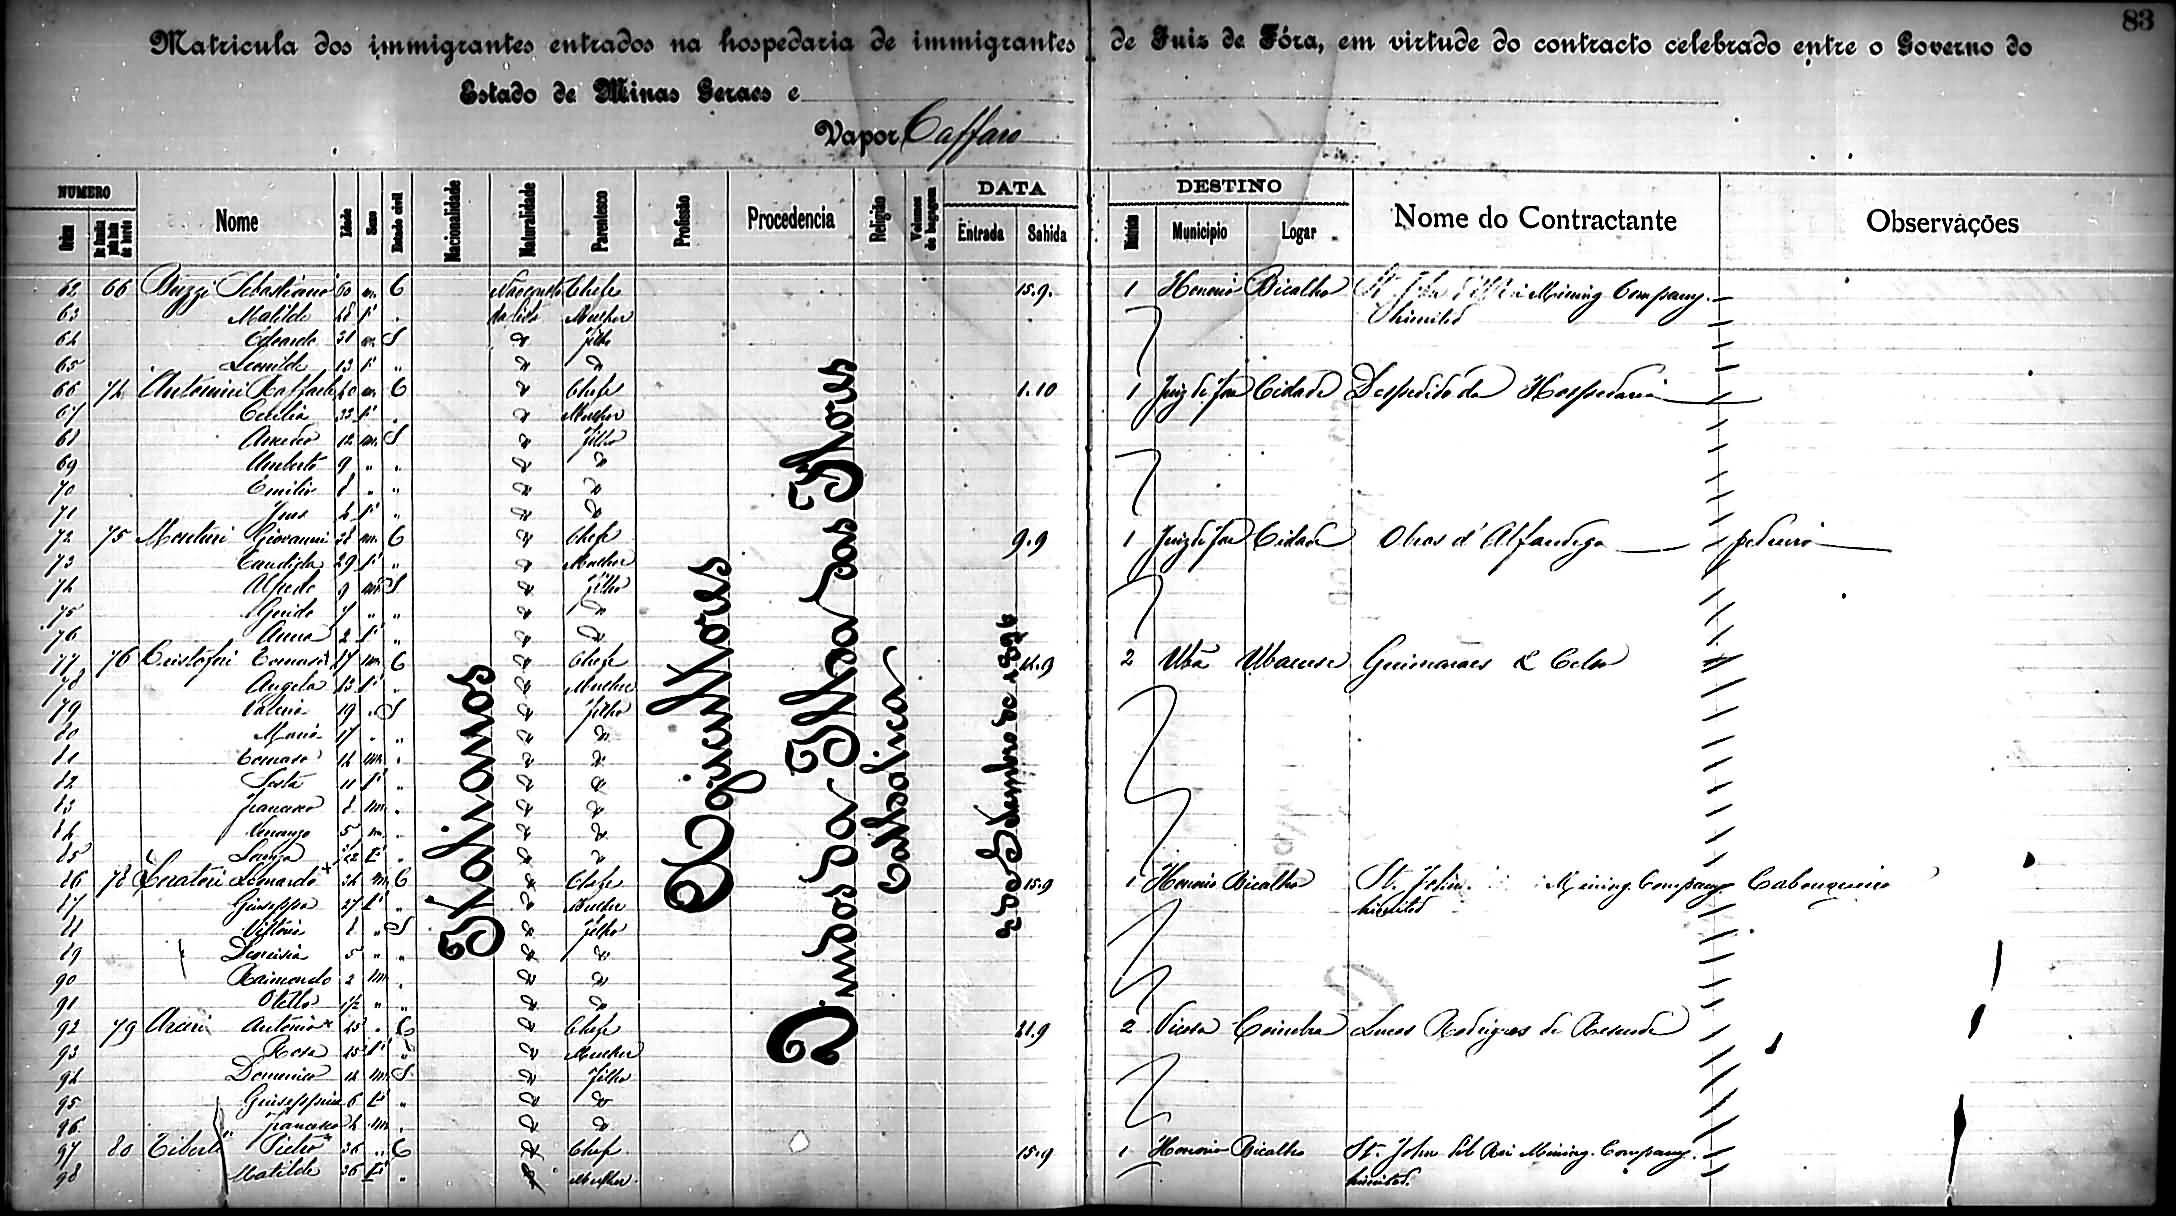 83
Matricula dos immigrantes entrados na hospedaria de immigrantes de Juiz de Fóra, em virtude do contracto celebrado entre o Governo do
Estado de Minas Geraes e
Vapor Caffaro
NUMERO DATA DESTINO
Ordem Nome Idade Sexo Estado civil Nacionalidade Naturalidade Parentesco Profissão Procedencia Religião Volumes de bagagem Entrada Sahida Municipio Logar Nome do Contractante Observações
62 66 Sebastiano 60 m. C Chefe 15.9. 1 Honorio Bicalho St. John Mining Company
63 Matilde f " Mulher Limited
64 Edoardo 31 m. S " filho
65 Leonilde 13 f " " "
66 74 Antonini Raffaele 40 m. C " Chefe 1.10 1 Juiz de Fora Cidade Despedido da Hospedaria
67 Cecilia 33 f " " Mulher
68 Amedeo 12 m. S " filho
69 Umberto 9 " " " "
70 Emilio 8 " " " "
71 f " " "
72 75 Giovanni m. C " Chefe 9.9 1 Juiz de Fora Cidade Obras d'Alfandega pedreiro
73 Candida 29 f " " Mulher
74 Alfredo 9 m S " filho
75 Guido 7 " " " "
76 Anna 2 f " " "
77 76 Cristofori Tomaso m. C " Chefe 14.9 2 Ubá Ubaense Guimarães &
78 Angela f " " Mulher
79 Valeria 19 " S " filho
80 Maria 17 " " " "
81 Tomaso 14 m. " " "
82 11 f " " "
83 Francesco 8 m. " " "
84 Venanzo 5 m. " " "
85 22 f " " "
86 78 Leonardo 34 m. C " Chefe 15.9 1 Honorio Bicalho St. John Mining Company Cabouqueiro
87 Giuseppa 27 f " " Mulher Limited
88 Vittoria 8 " S " filho
89 5 " " " "
90 Raimondo 2 m. " " "
91 Otello 1/2 " " " "
92 79 Antonio 45 " C " Chefe 21.9 2 Viçosa Coimbra Lucas Rodrigues de Resende
93 Rosa 45 f " " Mulher
94 Domenico 14 m. S " filho
95 Giuseppina 6 f " " "
96 Francesco 4 m. " " "
97 80 Tiberi Pietro 36 " C " Chefe 15.9 1 Honorio Bicalho St. John del Rei Mining Company
98 Matilde 36 f " " Mulher Limited.
Italianos
Agricultores
Vindos da Ilha das Flores
Catholica
2 de Setembro de 1896